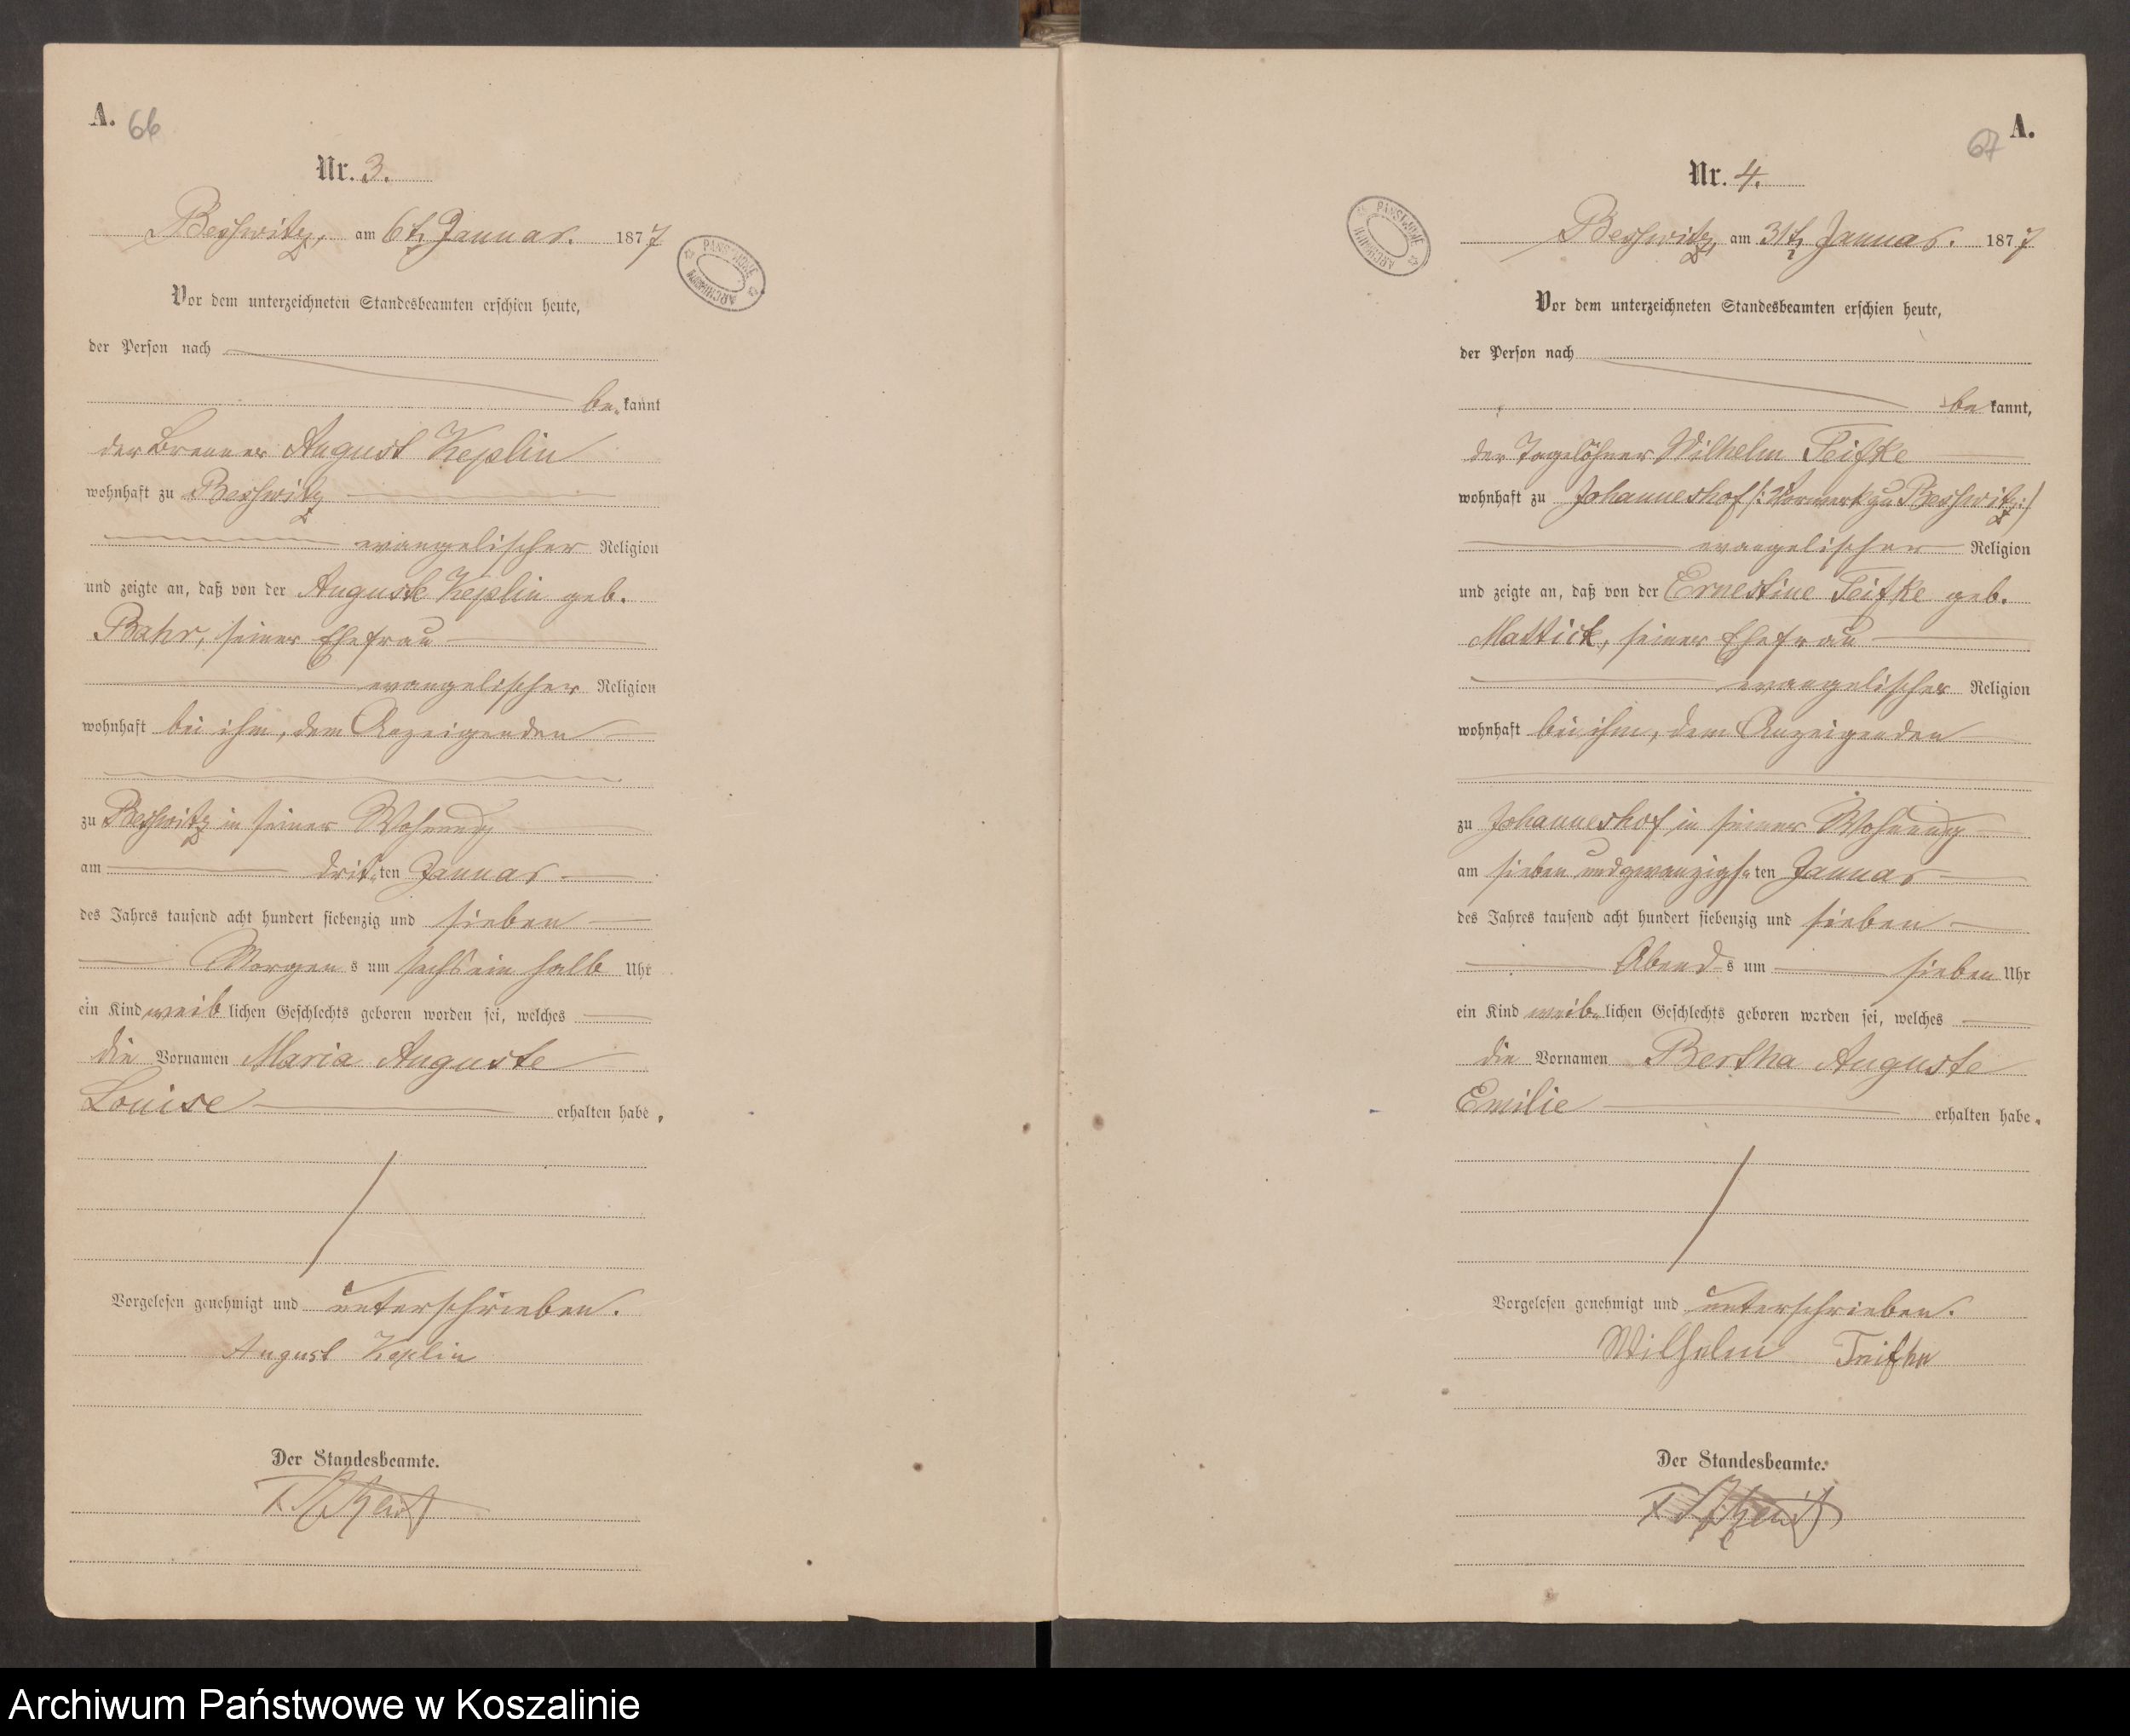 A. 66
Nr. 3.
Besswitz, am 6t Januar. 1877
PANSTWOWE ARCHIWUM
Vor dem unterzeichneten Standesbeamten erschien heute,
der Person nach
be kannt
der Brenner August Keplin
wohnhaft zu Besswitz
evangelischer Religion
und zeigte an, daß von der Auguste Keplin geb.
Bahr, seiner Ehefrau
evangelischer Religion
wohnhaft bei ihm, dem Anzeigenden
zu Besswitz in seiner Wohnung
am dritten Januar
des Jahres tausend acht hundert siebenzig und sieben
Morgens um sechs ein halb Uhr
ein Kind weiblichen Geschlechts geboren worden sei, welches
die Vornamen Maria Auguste
Louise erhalten habe.
Vorgelesen genehmigt und unterschrieben.
August Keplin
Der Standesbeamte.
A.
67
Nr. 4.
Besswitz, am 31t Januar. 1877
PANSTWOWE ARCHIWUM
Vor dem unterzeichneten Standesbeamten erschien heute,
der Person nach
be kannt,
der Tagelöhner Wilhelm Teifke
wohnhaft zu Johanneshof /: Vorwerk zu Besswitz :/
evangelischer Religion
und zeigte an, daß von der Ernestine Teifke geb.
Mattick, seiner Ehefrau
evangelischer Religion
wohnhaft bei ihm, dem Anzeigenden
zu Johanneshof in seiner Wohnung
am sieben und zwanzigsten Januar
des Jahres tausend acht hundert siebenzig und sieben
Abends um sieben Uhr
ein Kind weiblichen Geschlechts geboren worden sei, welches
die Vornamen Bertha Auguste
Emilie erhalten habe.
Vorgelesen genehmigt und unterschrieben.
Wilhelm Teifke
Der Standesbeamte.
Archiwum Państwowe w Koszalinie